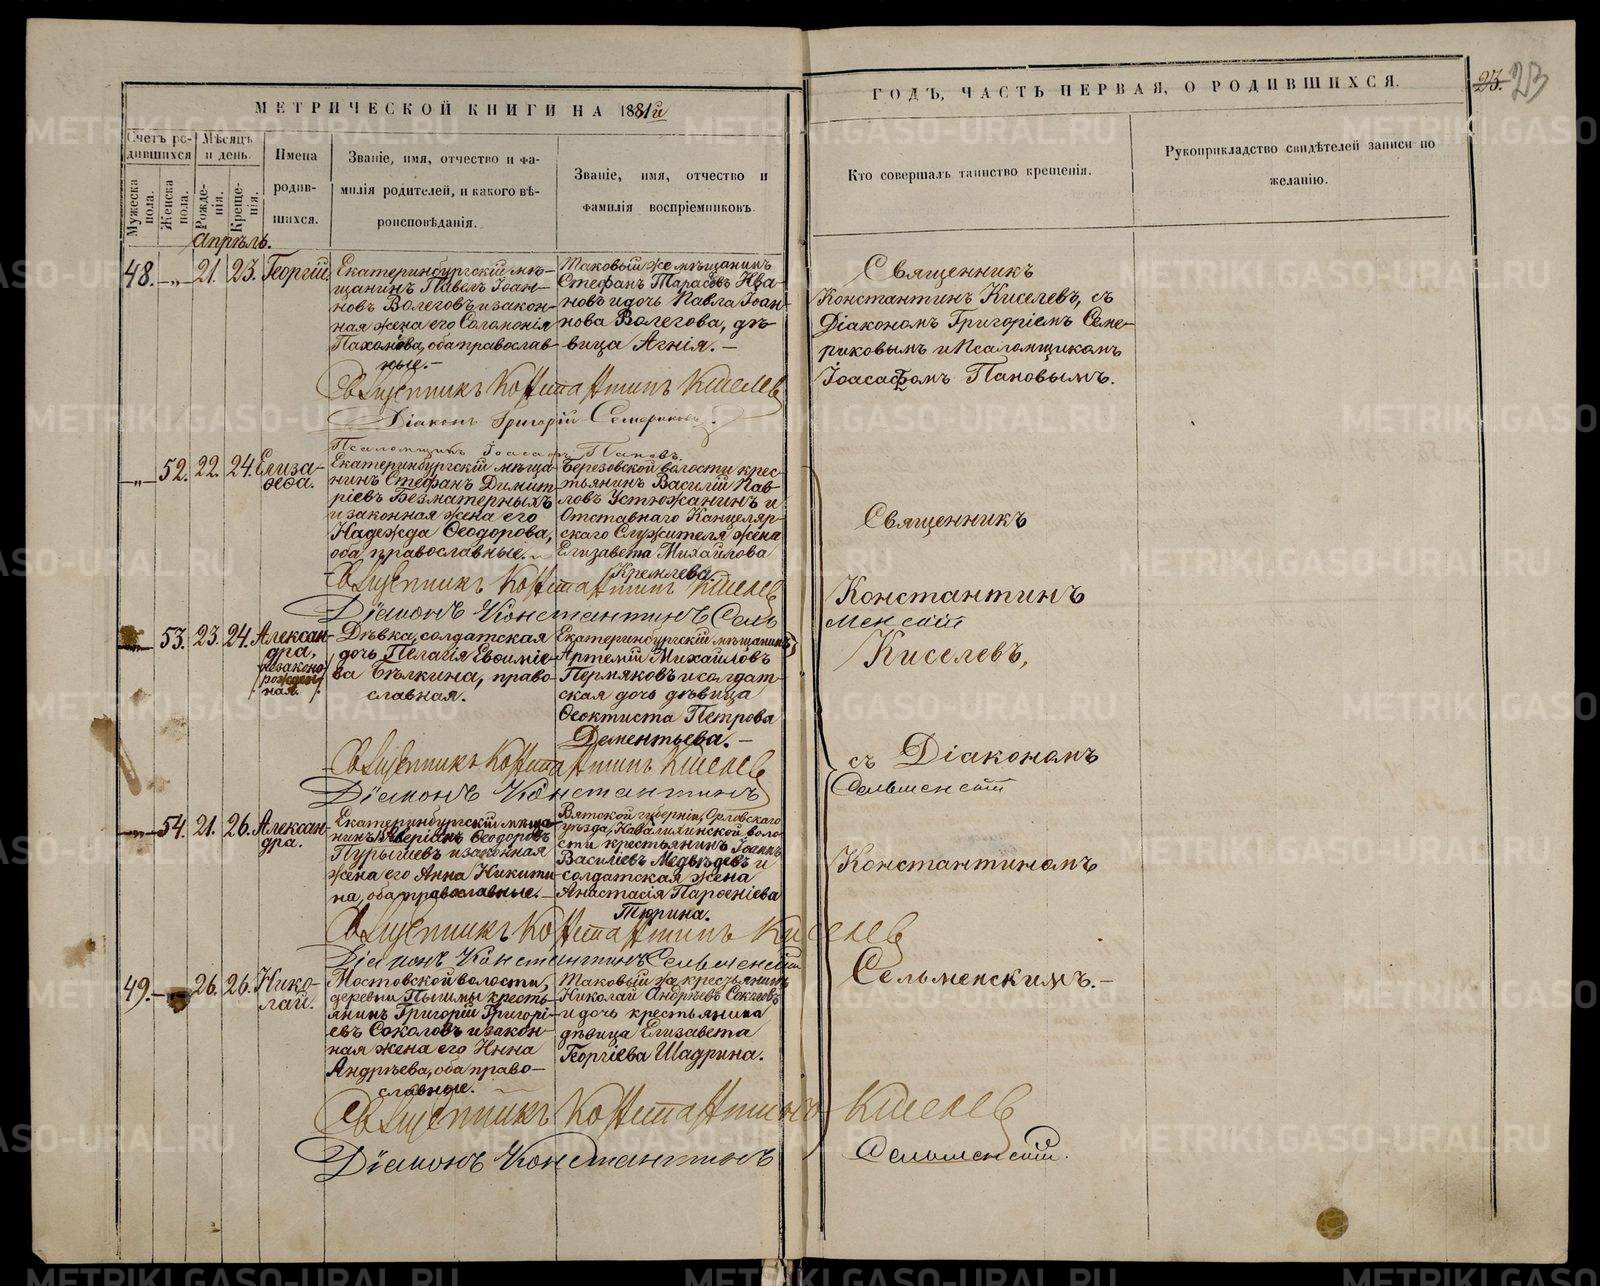 МЕТРИЧЕСКОЙ КНИГИ НА 1881й
ГОДЪ, ЧАСТЬ ПЕРВАЯ, О РОДИВШИХСЯ.
23.
23
Счетъ ро-
дившихся
Мѣсяцъ
и день.
Мужеска
пола.
Женска
пола.
Рожде-
нія.
Креще-
нія.
Имена
родив-
шихся.
Званіе, имя, отчество и фа-
милія родителей, и какого вѣ-
роисповѣданія.
Званіе, имя, отчество и
фамилія воспріемниковъ.
Кто совершалъ таинство крещенія.
Рукоприкладство свидѣтелей записи по
желанію.
Апрѣль.
48. „ 21. 23. Георгій.
Екатеринбургскій мѣ-
щанинъ Павелъ Іоан-
новъ Волеговъ и закон-
ная жена его Соломонія
Пахомова, оба православ-
ные.
Таковый же мѣщанинъ
Стефанъ Тарасовъ Ива-
новъ и дочь Павла Іоан-
нова Волегова, дѣ-
вица Агнія.
Священникъ
Константинъ Киселевъ, съ
Діакономъ Григоріемъ Семе-
риковымъ и Псаломщикомъ
Іоасафомъ Пановымъ.
Священникъ Константинъ Киселев
Діаконъ Григорій Семериковъ.
Псаломщикъ Іоасафъ Пановъ.
„ 52. 22. 24. Елиза-
вета.
Екатеринбургскій мѣща-
нинъ Стефанъ Димит-
ріевъ Безматерныхъ
и законная жена его
Надежда Ѳеодорова,
оба православные.
Березовской волости крес-
тьянинъ Василій Пав-
ловъ Устюжанинъ и
Отставнаго Канцеляр-
скаго Служителя жена
Елизавета Михайлова
Кремлева.
Священникъ Константинъ Киселев
Діаконъ Константинъ Сель
менскій
53. 23. 24. Алексан-
дра,
незаконо-
рожден-
ная.
Дѣвка, солдатская
дочь Пелагія Евѳиміе-
ва Бѣлкина, право-
славная.
Екатеринбургскій мѣщанинъ
Артемій Михайловъ
Пермяковъ и солдат-
ская дочь дѣвица
Ѳеоктиста Петрова
Дементьева.
Священникъ Константинъ Киселев
Діаконъ Константинъ
Сельменскій
54. 21. 26. Алексан-
дра.
Екатеринбургскій мѣща-
нинъ Аверіанъ Ѳеодоровъ
Пурышевъ и законная
жена его Анна Никити-
на, оба православные.
Вятской губерніи, Орловскаго
уѣзда, волос-
ти крестьянинъ Іоаннъ
Васильевъ Медвѣдевъ и
солдатская жена
Анастасія Парѳеніева
Тюрина.
Священникъ Константинъ Киселев
Діаконъ Константинъ Сельменскій
49. 26. 26. Нико-
лай.
Мостовской волости,
деревни Пышмы кресть-
янинъ Григорій Григорі-
евъ Соколовъ и закон-
ная жена его Анна
Андрѣева, оба право-
славные.
Таковый же крестьянинъ
Николай Андрѣевъ Соколовъ
и дочь крестьянина
дѣвица Елизавета
Георгіева Шадрина.
Священникъ Константинъ Киселев
Діаконъ Константинъ Сельменскій.
Священникъ
Константинъ
Киселевъ,
съ Діакономъ
Константиномъ
Сельменскимъ.
METRIKI.GASO-URAL.RU